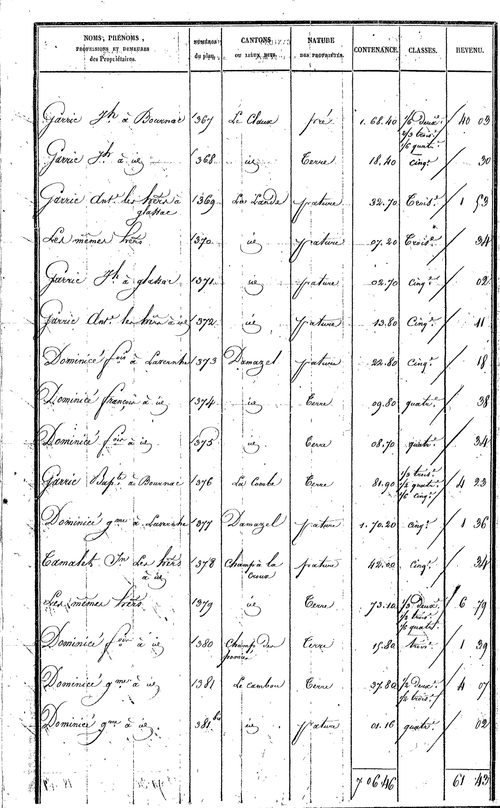 NOMS, PRÉNOMS, PROFESSIONS ET DEMEURES des Propriétaires. NUMÉROS du plan. CANTONS OU LIEUX DITS. NATURE DES PROPRIÉTÉS. CONTENANCE. CLASSES. REVENU.
Garric Jh à Bournac 1367 Le Claux pré 1. 68. 40 1/2 deux.e 2/3 trois.e 1/6 quatr.e 40 03
Garric Jh à id 1368 id Terre 18. 40 cinq.e 30
Garric Ant. les hérs à glassac 1369 La Lande pature 32. 70 Trois.e 1 53
Les mêmes hérs 1370 id pature 07. 20 Trois.e 34
Garric Jh à glassac 1371 id pature 02. 70 Cinq.e 02
Garric Ant. les hérs à id 1372 id pature 13. 80 Cinq.e 11
Dominicé fois à 1373 Damazel pature 22. 80 cinq.e 18
Dominicé françois à id 1374 id Terre 09. 80 quatr.e 38
Dominicé fois à id 1375 id Terre 08. 70 quatr.e 34
Garric Bapt.e à Bournac 1376 La Combe Terre 81. 90 1/3 trois.e 1/2 quatr.e 1/6 cinq.e 4 23
Dominicé gme à 1377 Damazel pature 1. 70. 20 cinq.e 1 36
Camalet Jn Les hérs à id 1378 Champ à la pature 42. 00 cinq.e 34
Les mêmes hérs 1379 id Terre 73. 10 1/3 deux.e 1/2 trois.e 1/6 quatr.e 6 79
Dominicé fois à id 1380 Champ des Terre 15. 80 trois.e 1 39
Dominicé gme à id 1381 Le cambou Terre 37. 80 1/2 deux.e 1/2 trois.e 4 07
Dominicé gme à id 381 bis id pature 01. 16 quatr.e 02
7 06. 46 61 43